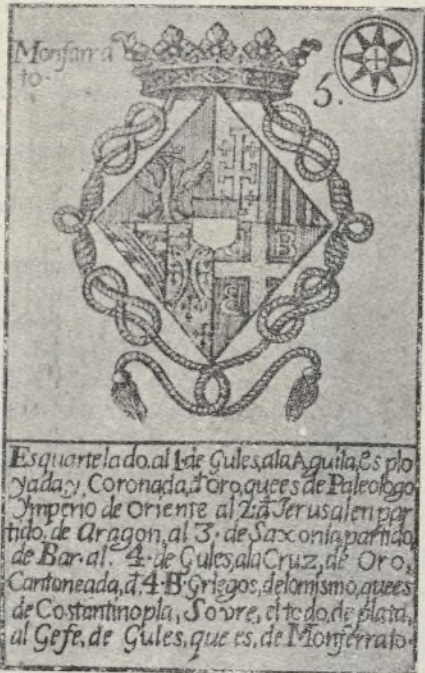 Monfarra
to.
5.
B
B
Esquartelado. al 1. de Gules, ala Aguila, Esplo
yada, y, Coronada, đ oro, que es de Paleologo
Ymperio de oriente al 2. đ Jerusalen par
tido, de Aragon, al 3. de Saxonia, partido
de Bar. al. 4. de Gules, ala Cruz, de Oro,
Cantoneada, đ, 4. B. Griegos, delomismo, que es
de Costantinopla, Sovre, el todo, de plata,
al Gefe, de Gules, que es, de Monferrato.